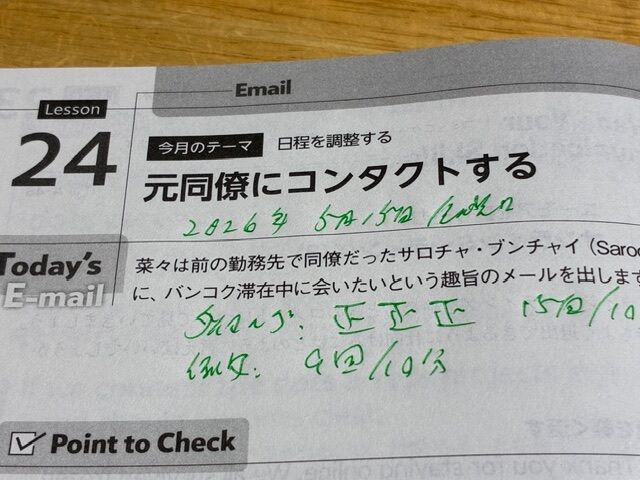 Email
Lesson
24
今月のテーマ 日程を調整する
元同僚にコンタクトする
2026年 5月15日
Today's
E-mail
菜々は前の勤務先で同僚だったサロチャ・ブンチャイ（Saroc
に、バンコク滞在中に会いたいという趣旨のメールを出します
正正正 15回/10
9回/10分
Point to Check